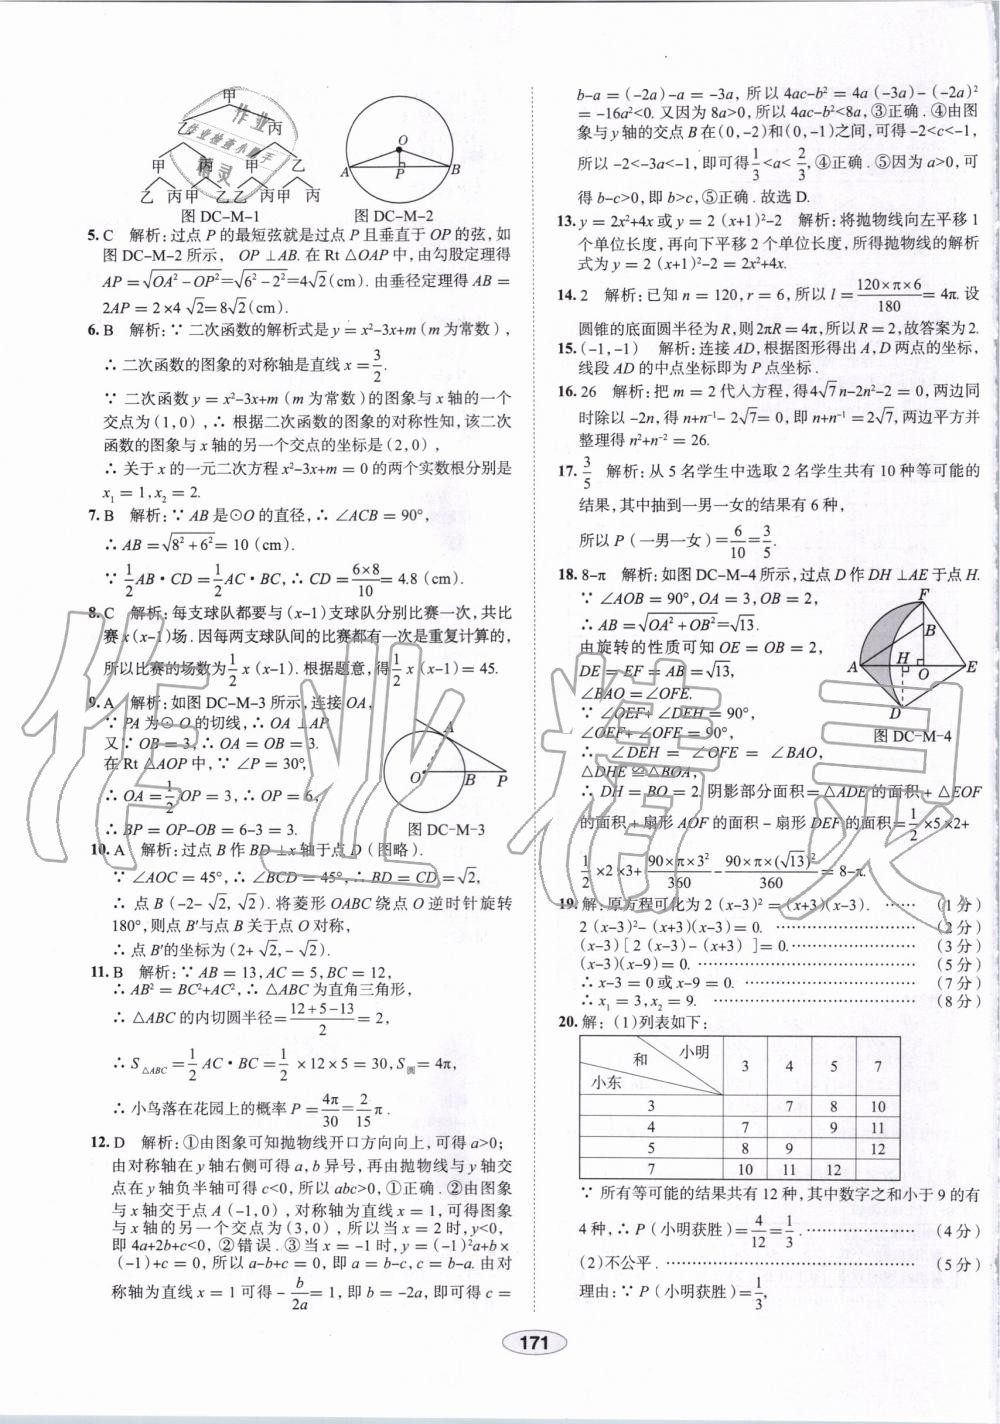 甲
乙 丙
甲 丙 甲 乙
乙 丙 甲 乙 乙 丙 甲 丙
图 DC-M-1
O
A P B
图 DC-M-2
5. C 解析:过点 P 的最短弦就是过点 P 且垂直于 OP 的弦,如
图 DC-M-2 所示, OP⊥AB. 在 Rt△OAP 中,由勾股定理得
AP=√(OA²-OP²)=√(6²-2²)=4√2(cm). 由垂径定理得 AB=
2AP=2×4√2=8√2(cm).
6. B 解析:∵ 二次函数的解析式是 y=x²-3x+m(m 为常数),
∴ 二次函数的图象的对称轴是直线 x=3/2.
∵ 二次函数 y=x²-3x+m(m 为常数)的图象与 x 轴的一个
交点为(1,0),∴ 根据二次函数的图象的对称性知,该二次
函数的图象与 x 轴的另一个交点的坐标是(2,0),
∴ 关于 x 的一元二次方程 x²-3x+m=0 的两个实数根分别是
x₁=1,x₂=2.
7. B 解析:∵ AB 是⊙O 的直径,∴ ∠ACB=90°,
∴ AB=√(8²+6²)=10(cm).
∵ 1/2 AB·CD=1/2 AC·BC,∴ CD=(6×8)/10=4.8(cm).
8. C 解析:每支球队都要与(x-1)支球队分别比赛一次,共比
赛 x(x-1)场. 因每两支球队间的比赛都有一次是重复计算的,
所以比赛的场数为 1/2 x(x-1). 根据题意,得 1/2 x(x-1)=45.
9. A 解析:如图 DC-M-3 所示,连接 OA,
∵ PA 为⊙O 的切线,∴ OA⊥AP.
又∵ OB=3,∴ OA=OB=3.
在 Rt△AOP 中,∵ ∠P=30°,
∴ OA=1/2 OP=3,∴ OP=6,
∴ BP=OP-OB=6-3=3.
A
O B P
图 DC-M-3
10. A 解析:过点 B 作 BD⊥x 轴于点 D(图略).
∵ ∠AOC=45°,∴ ∠BCD=45°,∴ BD=CD=√2,
∴ 点 B(-2-√2,√2). 将菱形 OABC 绕点 O 逆时针旋转
180°,则点 B′与点 B 关于点 O 对称,
∴ 点 B′的坐标为(2+√2,-√2).
11. B 解析:∵ AB=13,AC=5,BC=12,
∴ AB²=BC²+AC²,∴ △ABC 为直角三角形,
∴ △ABC 的内切圆半径=(12+5-13)/2=2,
∴ S△ABC=1/2 AC·BC=1/2×12×5=30,S圆=4π,
∴ 小鸟落在花园上的概率 P=4π/30=2/15 π.
12. D 解析:①由图象可知抛物线开口方向向上,可得 a>0;
由对称轴在 y 轴右侧可得 a,b 异号,再由抛物线与 y 轴交
点在 y 轴负半轴可得 c<0,所以 abc>0,①正确. ②由图象
与 x 轴交于点 A(-1,0),对称轴为直线 x=1,可得图象
与 x 轴的另一个交点为(3,0),所以当 x=2 时,y<0,
即 4a+2b+c<0,②错误. ③当 x=-1 时,y=(-1)²a+b×
(-1)+c=0,所以 a-b+c=0,即 a=b-c,c=b-a. 由对
称轴为直线 x=1 可得 -b/2a=1,即 b=-2a,即可得 c=
b-a=(-2a)-a=-3a,所以 4ac-b²=4a(-3a)-(-2a)²
=-16a²<0. 又因为 8a>0,所以 4ac-b²<8a,③正确. ④由图
象与 y 轴的交点 B 在(0,-2)和(0,-1)之间,可得 -2<c<-1,
所以 -2<-3a<-1,即可得 1/3<a<2/3,④正确. ⑤因为 a>0,可
得 b-c>0,即 b>c,⑤正确. 故选 D.
13. y=2x²+4x 或 y=2(x+1)²-2 解析:将抛物线向左平移 1
个单位长度,再向下平移 2 个单位长度,所得抛物线的解析
式为 y=2(x+1)²-2=2x²+4x.
14. 2 解析:已知 n=120,r=6,所以 l=(120×π×6)/180=4π. 设
圆锥的底面圆半径为 R,则 2πR=4π,所以 R=2,故答案为 2.
15. (-1,-1) 解析:连接 AD,根据图形得出 A,D 两点的坐标,
线段 AD 的中点坐标即为 P 点坐标.
16. 26 解析:把 m=2 代入方程,得 4√7n-2n²-2=0,两边同
时除以 -2n,得 n+n⁻¹-2√7=0,即 n+n⁻¹=2√7,两边平方并
整理得 n²+n⁻²=26.
17. 3/5 解析:从 5 名学生中选取 2 名学生共有 10 种等可能的
结果,其中抽到一男一女的结果有 6 种,
所以 P(一男一女)=6/10=3/5.
18. 8-π 解析:如图 DC-M-4 所示,过点 D 作 DH⊥AE 于点 H.
∵ ∠AOB=90°,OA=3,OB=2,
∴ AB=√(OA²+OB²)=√13.
由旋转的性质可知 OE=OB=2,
DE=EF=AB=√13,
∠BAO=∠OFE.
∵ ∠OEF+∠DEH=90°,
∠OEF+∠OFE=90°,
∴ ∠DEH=∠OFE=∠BAO,
△DHE≌△BOA,
F
B
A H O E
D
图 DC-M-4
∴ DH=BO=2. 阴影部分面积=△ADE 的面积+△EOF
的面积+扇形 AOF 的面积-扇形 DEF 的面积=1/2×5×2+
1/2×2×3+(90×π×3²)/360-(90×π×(√13)²)/360=8-π.
19. 解:原方程可化为 2(x-3)²=(x+3)(x-3). …… (1 分)
2(x-3)²-(x+3)(x-3)=0. …………………… (2 分)
(x-3)[2(x-3)-(x+3)]=0. …………………… (3 分)
(x-3)(x-9)=0. …………………… (5 分)
∴ x-3=0 或 x-9=0. …………………… (7 分)
∴ x₁=3,x₂=9. …………………… (8 分)
20. 解:(1)列表如下:
和 小明 小东 3 4 5 7
3 7 8 10
4 7 9 11
5 8 9 12
7 10 11 12
∵ 所有等可能的结果共有 12 种,其中数字之和小于 9 的有
4 种,∴ P(小明获胜)=4/12=1/3. …………………… (4 分)
(2)不公平. …………………… (5 分)
理由:∵ P(小明获胜)=1/3,
171
作业精灵
作业检查小助手